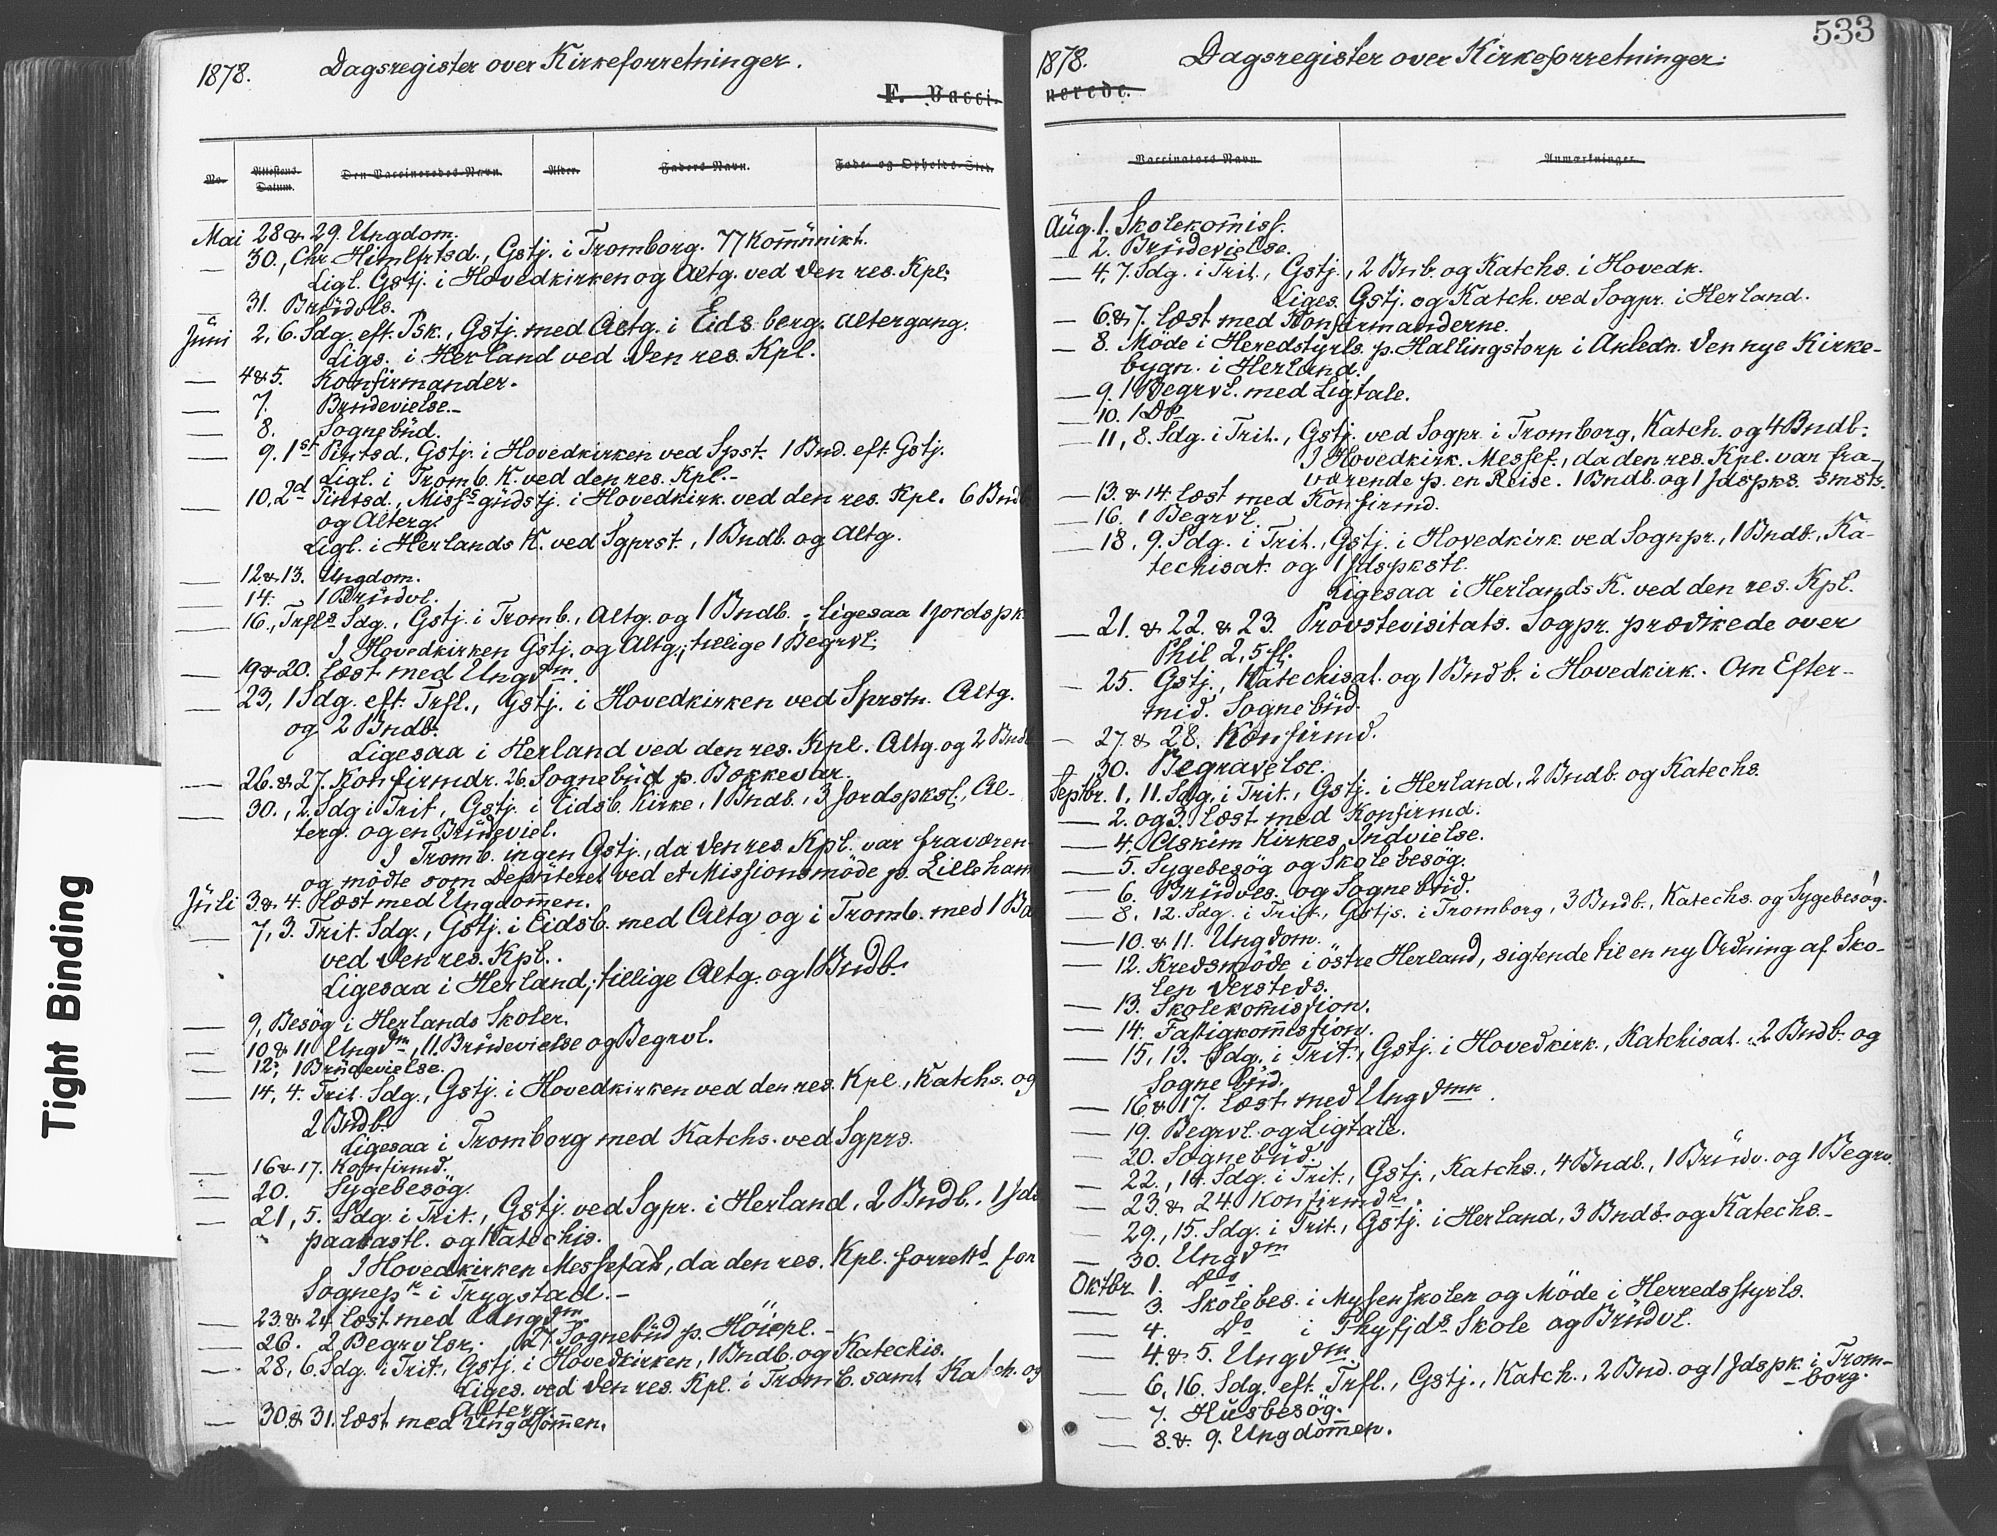 1878. Dagsregister over Kirkeforretninger.
F. Vacci-
No. Attestens Datum. Den Vaccineredes Navn. Alder. Faders Navn. Føde- og Opholds-Sted.
Mai 28 & 29. Ungdom.
— 30., Chr. Himlfrtsd., Gstj. i Tromborg. 77 Kommünikt.
Ligl. Gstj. i Hovedkirken og Altg. ved den res. Kpl.
— 31. Brüdvls.
Jüni 2, 6. Sdg. eft. Psk., Gstj. med Altg. i Eidsberg. Altergang.
Ligs. i Herland ved den res. Kpl.
— 4 & 5. Konfirmander.
— 7. Brüdevielse.-
— 8. Sognebüd.
— 9. 1st Pintsd., Gstj. i Hovedkirken ved Spst. 1 Bnd. eft. Gstj.
Ligl. i Tromb. K. ved den res. Kpl.-
— 10, 2d Pintsd., Missˢgudstj. i Hovedkirk. ved den res. Kpl. 6 Bndb.
og Alterg.
Ligl. i Herlands K. ved Sgprst., 1 Bndb. og Altg.
— 12 & 13. Ungdom.
— 14. 1 Brüdvl.
— 16., Trfls Sdg., Gstj. i Tromb., Altg. og 1 Bndb. ; Ligesaa 1 jordspk.
I Hovedkirken Gstj. og Altg.; tillige 1 Begrvl.
— 19 & 20. læst med Ungdm.
— 23, 1 Sdg. eft. Trfl., Gstj. i Hovedkirken ved Sprstn. Altg.
og 2 Bndb.
Ligesaa i Herland ved den res. Kpl. Altg. og 2 Bndb
— 26. & 27. Konfirmdr. 26. Sognebüd p. Bokkevar.
— 30., 2. Sdg i Trit, Gstj. i Eidsb. Kirke, 1 Bndb., 3 Jordspksl., Al-
terg. og en Brüdeviel.
I Tromb. ingen Gstj., da den res. Kpl. var fraværen-
og mödte som Depüteret ved et Missionsmöde p. Lilleham
Jüli 3 & 4. Læst med Ungdomen.
— 7, 3. Trit. Sdg., Gstj. i Eidsb. med Altg og i Tromb. med 1 Ba
ved den res. Kpl..
Ligesaa i Herland; tillige Altg. og 1 Bndb.
— 9, Besög i Herlands Skoler.
— 10 & 11 Ungdm, 11. Brüdevielse og Begrvl.
— 12, 1 Brüdevielse.
— 14, 4. Trit. Sdg., Gstj. i Hovedkirken ved den res. Kpl., Katchs. og
2 Bndb.
Ligesaa i Tromborg med Katchs. ved Sgprs.
— 16 & 17. Konfirmd.
— 20. Sygebesög.
— 21, 5. Sdg. i Trit., Gstj. ved Sgpr. i Herland, 2 Bndb., 1 Jds
paakastl. og Katechis.
I Hovedkirken Messefald, da den res. Kpl. forrettd for
Sognepr i Trygstad.-
— 23. & 24. læst med Ungdm.
— 26. 2 Begrvlsr. 27. Sognebüd p. Höiepl.-
— 28, 6. Sdg. i Trit., Gstj. i Hovedkirken, 1 Bndb. og Katechis.
Liges. ved den res. Kpl. i Tromb. samt Katch. og
Alterg.
— 30. & 31. læst med Ungdommen.
533
1878. Dagsregister over Kirkeforretninger.
nerede.
Vaccinators Navn. Anmærkninger.
Aüg. 1. Skolekomiss.
— 2. Brüdevielse.
— 4, 7. Sdg. i Trit., Gstj., 2 Bnb. og Katchs. i Hovedk.
Liges. Gstj. og Katch. ved Sogpr. i Herland.
— 6. & 7. læst med Konfirmanderne.
— 8. Möde i Heredstyrls. p. Hallingstorp i Anledn. den nye Kirke-
bygn. i Herland.
— 9. 1 Begrvl. med Ligtale.
— 10. 1 Do
— 11, 8. Sdg. i Trit., Gstj. ved Sogpr. i Tromborg, Katch. og 4 Bndb.
I Hovedkirk. Messef., da den res. Kpl. var fra-
værende p. en Reise. 1 Bndb. og 1 Jdspks. smsts.
— 13. & 14. læst med Konfirmd.
— 16. 1 Begrvl.
— 18, 9. Sdg. i Trit., Gstj. i Hovedkirk. ved Sognpr., 1 Bndb., Ka-
techisat. og 1 Jdspkstl.
Ligesaa i Herlands K. ved den res. Kpl.
— 21. & 22. & 23. Provstevisitats. Sogpr. prædikede over
Phil. 2, 5 fl.
— 25. Gstj., Katechisat. og 1 Bndb. i Hovedkirk. Om Efter-
mid. Sognebüd.
— 27. & 28. Konfirmd.
30. Begravelse.
Septbr. 1, 11. Sdg. i Trit., Gstj. i Herland, 2 Bndb. og Katechs.
— 2. og 3. læst med Konfirmd.
— 4. Askim Kirkes Indvielse.
— 5. Sygebesög og Skolebesög.
— 6. Brüdves. og Sognebüd.
— 8. 12. Sdg. i Trit., Gstjs. i Tromborg, 3 Bndb., Katechs. og Sygebesög.
— 10. & 11. Ungdom.
— 12. Kredsmöde i östre Herland, sigtende til en ny Ordning af Sko-
len dersteds.
— 13. Skolekomission.
— 14. Fattigkommission.
— 15, 13. Sdg. i Trit., Gstj. i Hovedkirk., Katchisat., 2 Bndb. og
Sognebüd.
— 16 & 17. læst med Ungdmn.
— 19. Begrvl. og Ligtale.
— 20. Sognebüd.
— 22., 14. Sdg. i Trit., Gstj., Katchs., 4 Bndb., 1 Brüdv. og 1 Begrv.
— 23. & 24. Konfirmdr.
— 29., 15. Sdg. i Trit., Gstj. i Herland, 3 Bndb. og Katechs.-
— 30. Ungdm
Oktbr. 1. Do
— 3. Skolebes. i Mysenskolen og Möde i Herredsstyrls.
— 4. Do i Thyfjds Skole og Brüdvl.
— 4. & 5. Ungdm.
— 6, 16. Sdg. eft. Trfl., Gstj., Katch., 2 Bnd. og 1 Jdspk. i Trom-
borg.
— 7. Husbesög.
— 8. & 9. Ungdommen.
Tight Binding